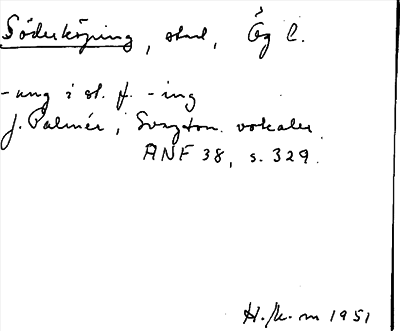 Söderköping, stad, Ög l.
-ung i st. f. -ing
J. Palmér, Svagton. vokaler
ANF 38, s. 329.
H. /k. m 1951